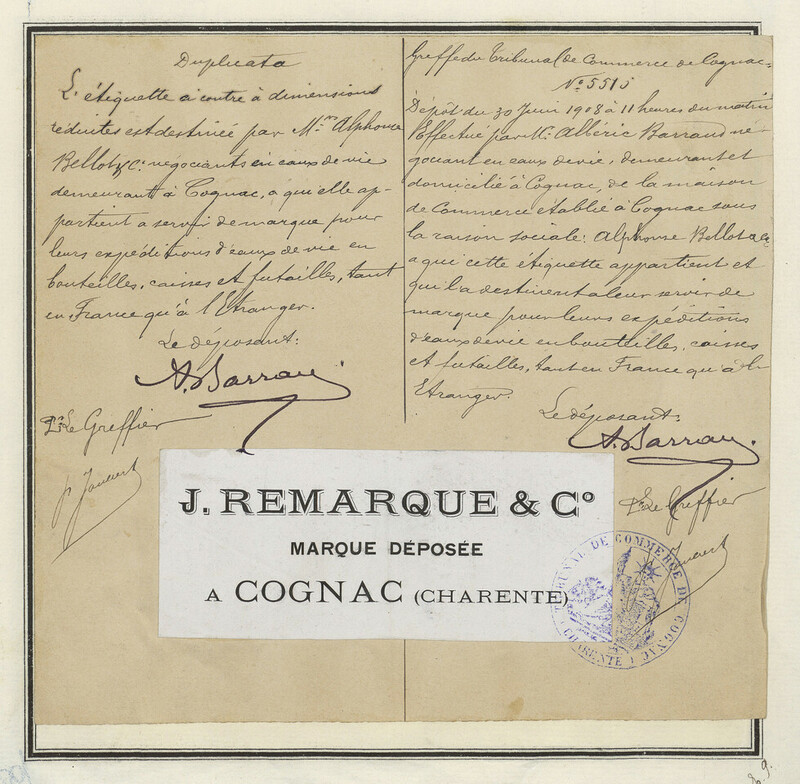 Duplicata
L'étiquette ci contre à dimensions
réduites est destinée par Mrs Alphonse
Bellot & C. négociants en eaux de vie
demeurant à Cognac, a qu'elle ap-
partient a servir de marque pour
leurs expéditions d'eaux de vie en
bouteilles, caisses et futailles, tant
en France qu'à l'Etranger.
Le déposant:
A. Barraud
Pr. Le Greffier
Greffe du Tribunal de Commerce de Cognac
No. 5515
Dépôt du 30 Juin 1908 à 11 heures du matin
Effectué par Mr. Albéric Barraud né-
gociant en eaux de vie, demeurant et
domicilié à Cognac, de la maison
de Commerce établie à Cognac sous
la raison sociale: Alphonse Bellot & Cie
a qui cette étiquette appartient et
qui la destinent a leur servir de
marque pour leurs expéditions
d'eaux de vie en bouteilles, caisses
et futailles, tant en France qu'à l'
Etranger.
Le déposant:
A. Barraud
Pr. Le Greffier
J. REMARQUE & Co
MARQUE DÉPOSÉE
A COGNAC (CHARENTE)
TRIBUNAL DE COMMERCE DE COGNAC
CHARENTE